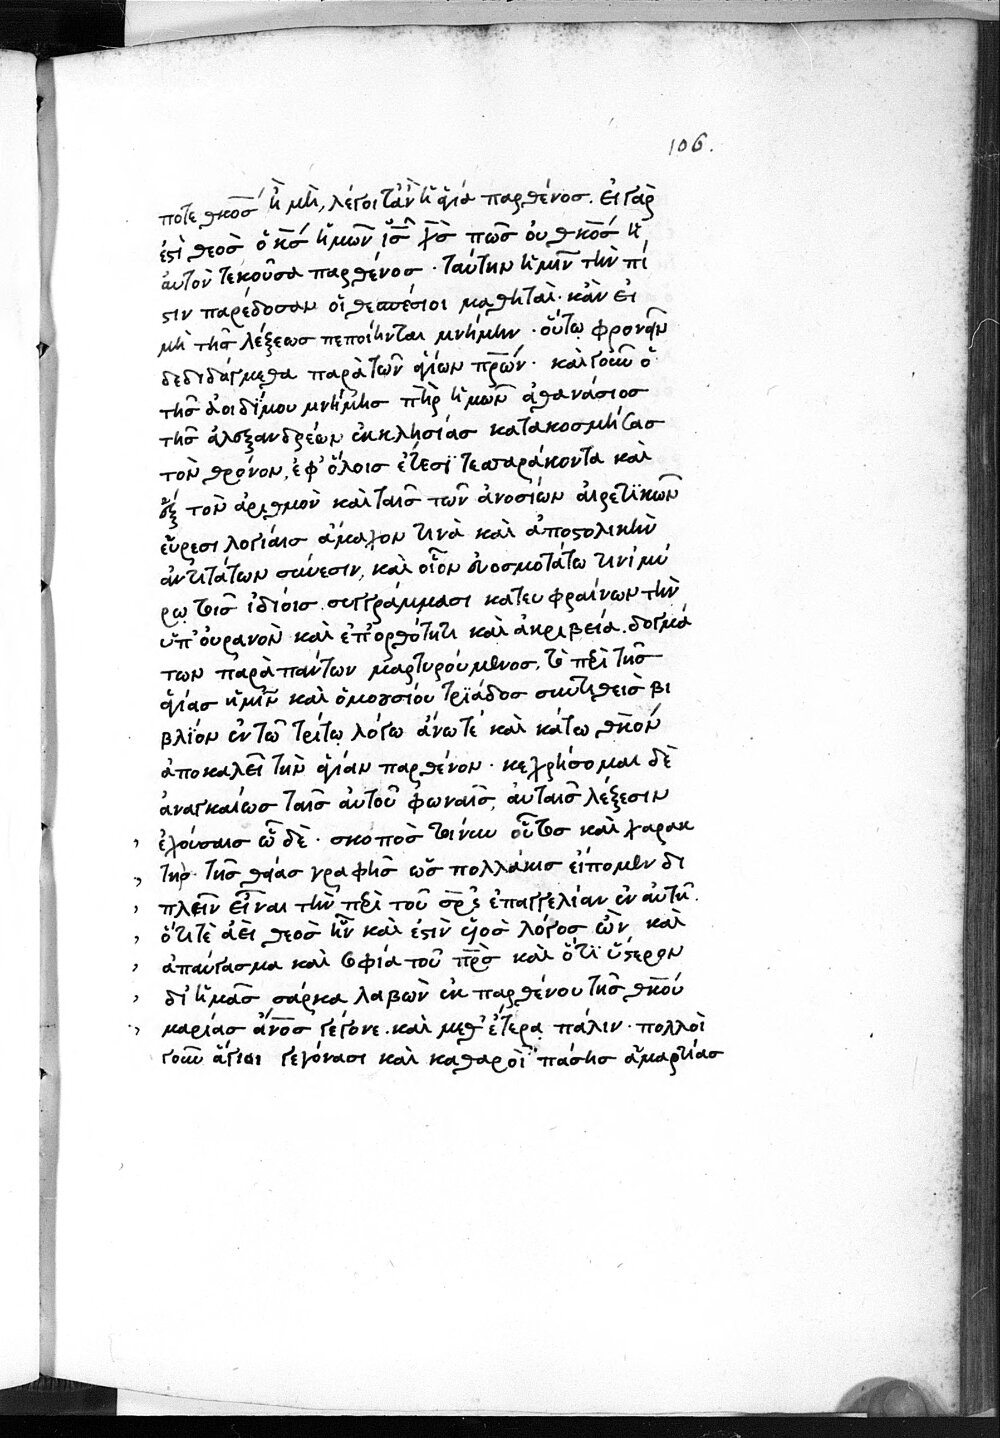 106.
ποτε θκοσ ἢ μὴ, λέγοιτ ἂν ἡ ἁγία παρθένοσ. εἰ γὰρ
ἐστὶ θεοσ ὁ κσ ἡμῶν ἰσ χσ πῶσ οὐ θκοσ ἡ
αὐτὸν τεκοῦσα παρθένοσ · ταύτην ἡμῖν τὴν πί
στιν παρέδοσαν οἱ θεσπέσιοι μαθηταὶ · κἂν εἰ
μὴ τῆσ λέξεωσ πεποίηνται μνήμην · οὕτω φρονεῖν
δεδιδάγμεθα παρὰ τῶν ἁγίων πρων · καὶ γοῦν ὁ
τῆσ ἀοιδίμου μνήμησ πηρ ἡμῶν ἀθανάσιοσ
τῆσ ἀλεξανδρέων ἐκκλησίασ κατακοσμήσασ
τὸν θρόνον, ἐφ' ὅλοισ ἔτεσϊ τεσσαράκοντα καὶ
ἓξ τὸν ἀριθμὸν καὶ ταῖσ τῶν ἀνοσίων αἱρετϊκῶν
εὑρεσιλογίαισ ἄμαχον τινὰ καὶ ἀποστολικὴν
ἀντιτάττων σύνεσιν, καὶ οἷον εὐοσμοτάτω τινὶ μύ
ρω τοῖσ ἰδίοισ συγγράμμασι κατευφραίνων τὴν
ὑπ' οὐρανὸν καὶ ἐπ' ὀρθότητι καὶ ἀκριβεία δογμά
των παρὰ πάντων μαρτυρούμενοσ, τὸ πρὶ τῆσ
ἁγίασ ἡμῖν καὶ ὁμοουσίου τρϊάδοσ συντιθεὶσ βι
βλίον ἐν τῶ τρίτω λόγω ἄνω τέ καὶ κάτω θκον
ἀποκαλεῖ τὴν ἁγίαν παρθένον · κεχρήσομαι δὲ
ἀναγκαίωσ ταῖσ αὐτοῦ φωναῖσ, αὐταῖσ λέξεσιν
ἐχούσαισ ὧδὲ · σκοποσ τοίνυν οὗτοσ καὶ χαρακ
τὴρ τῆσ θείασ γραφῆσ ὡσ πολλάκισ εἴπομεν δι
πλῆν εἶναι τὴν πρὶ τοῦ σρσ ἐπαγγελίαν ἐν αὐτῆ ·
ὅτι τὲ ἀεὶ θεοσ ἦν καὶ ἐστὶν υἱοσ λόγοσ ὢν, καὶ
ἀπαύγασμα καὶ σοφία τοῦ πρσ καὶ ὅτϊ ὕστερον
δι' ἡμᾶσ σάρκα λαβὼν ἐκ παρθένου τῆσ θκου
μαρίασ ἄνοσ γέγονε · καὶ μεθ' ἕτερα πάλιν · πολλοὶ
γοῦν ἅγιοι γεγόνασι καὶ καθαροὶ πάσησ ἁμαρτίασ